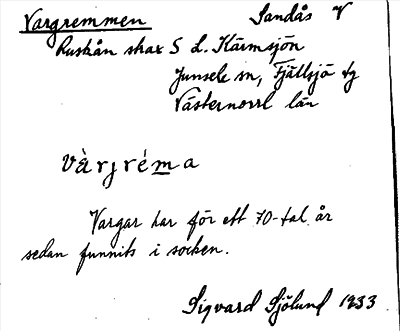 Vargremmen Sandås V
Ruskån strax S L. Kärmsjön
Junsele sn, Fjällsjö tg
Västernorrl län
Vargar har för ett 70-tal år
sedan funnits i socken.
Sigvard Sjölund 1933